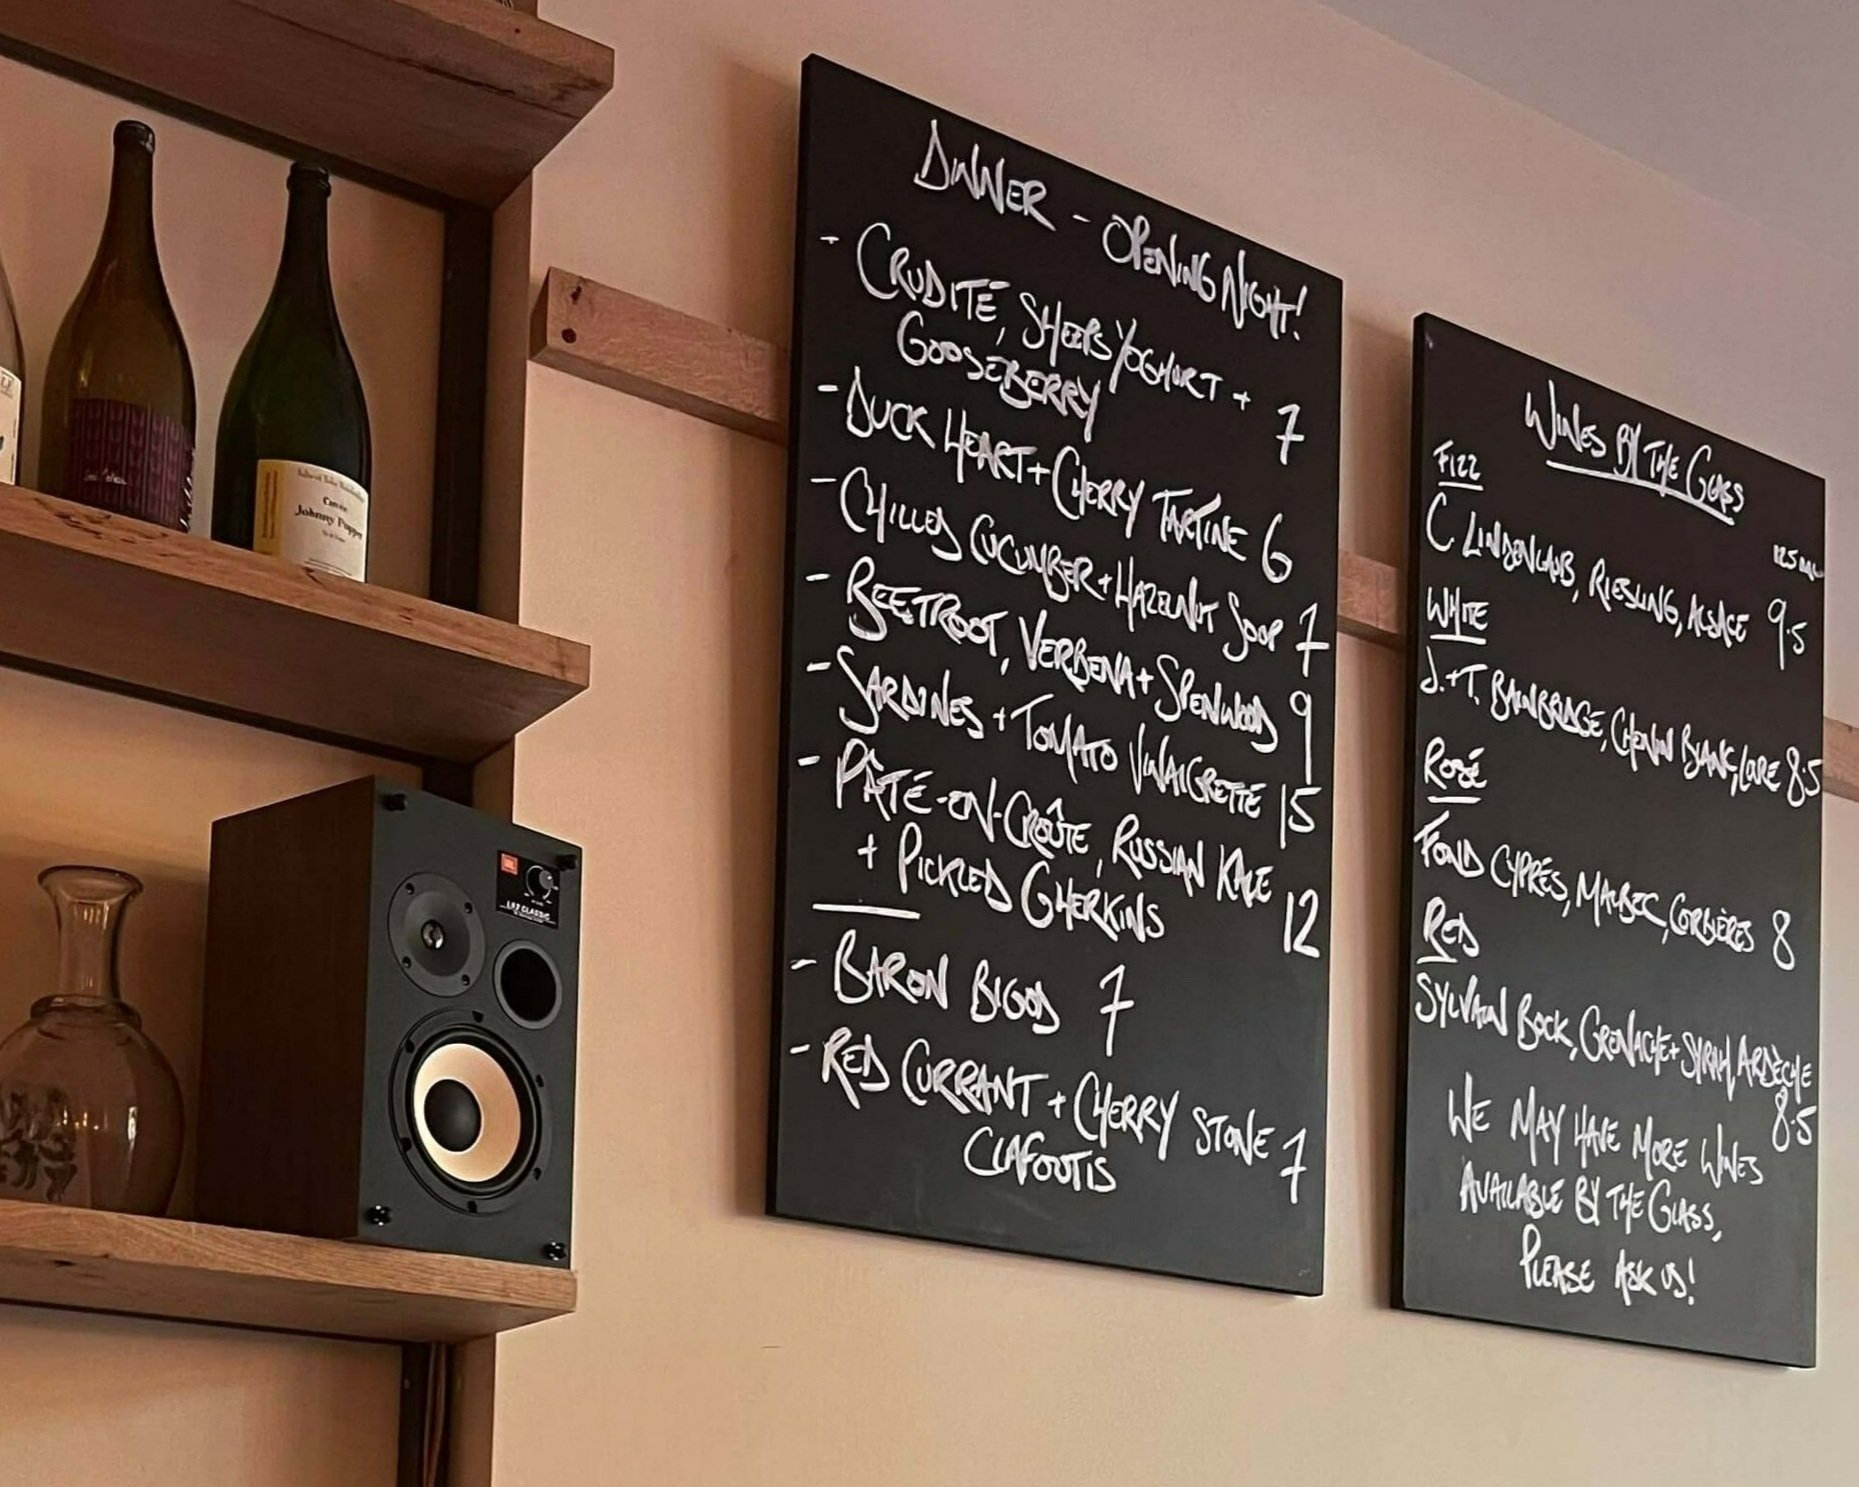 Johnny Pepper
JBL
L52 CLASSIC
DINNER - OPENING NIGHT!
- CRUDITÉ, SHEEPS YOGHURT +
GOOSEBERRY 7
- DUCK HEART + CHERRY TARTINE 6
- CHILLED CUCUMBER + HAZELNUT SOUP 7
- BEETROOT, VERBENA + SPENWOOD 9
- SARDINES + TOMATO VINAIGRETTE 15
- PÂTÉ-EN-CROÛTE, RUSSIAN KALE
+ PICKLED GHERKINS 12
- BARON BIGOD 7
- RED CURRANT + CHERRY STONE
CLAFOUTIS 7
WINES BY THE GLASS
FIZZ
125ML
C. LINDENLAUB, RIESLING, ALSACE 9.5
WHITE
J.+T. BAINBRIDGE, CHENIN BLANC, LOIRE 8.5
ROSÉ
FOND CYPRÉS, MALBEC, CORBIÈRES 8
RED
SYLVAIN BOCK, GRENACHE + SYRAH, ARDÈCHE
8.5
WE MAY HAVE MORE WINES
AVAILABLE BY THE GLASS,
PLEASE ASK US!